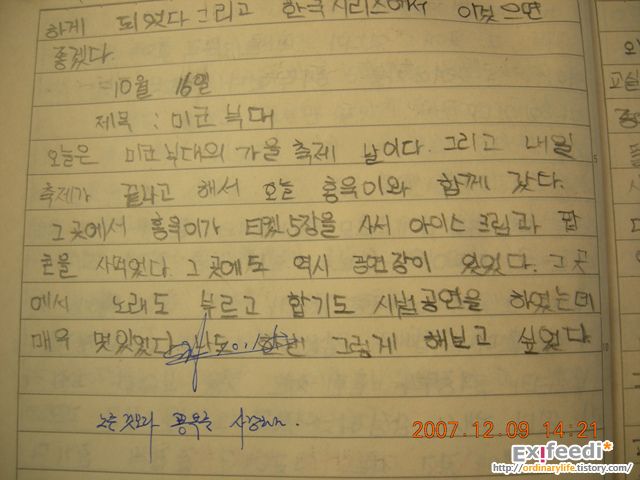 하게 되었다 그리고 한국시리즈에서 이겼으면
좋겠다.
10월 16일
제목 : 미군 부대
오늘은 미군부대의 가을 축제 날이다. 그리고 내일
축제가 끝나고 해서 오늘 홍욱이와 함께 갔다.
그 곳에서 홍욱이가 티켓 5장을 사서 아이스크림과 팝
콘을 사먹었다. 그 곳에도 역시 공연장이 있었다. 그 곳
에서 노래도 부르고 합기도 시범공연을 하였는데
매우 멋있었다. 한번 그렇게 해보고 싶었다.
노는 것보다
2007.12.09 14:21
Exifeedi
http://ordinarylife.tistory.com/
오
교실